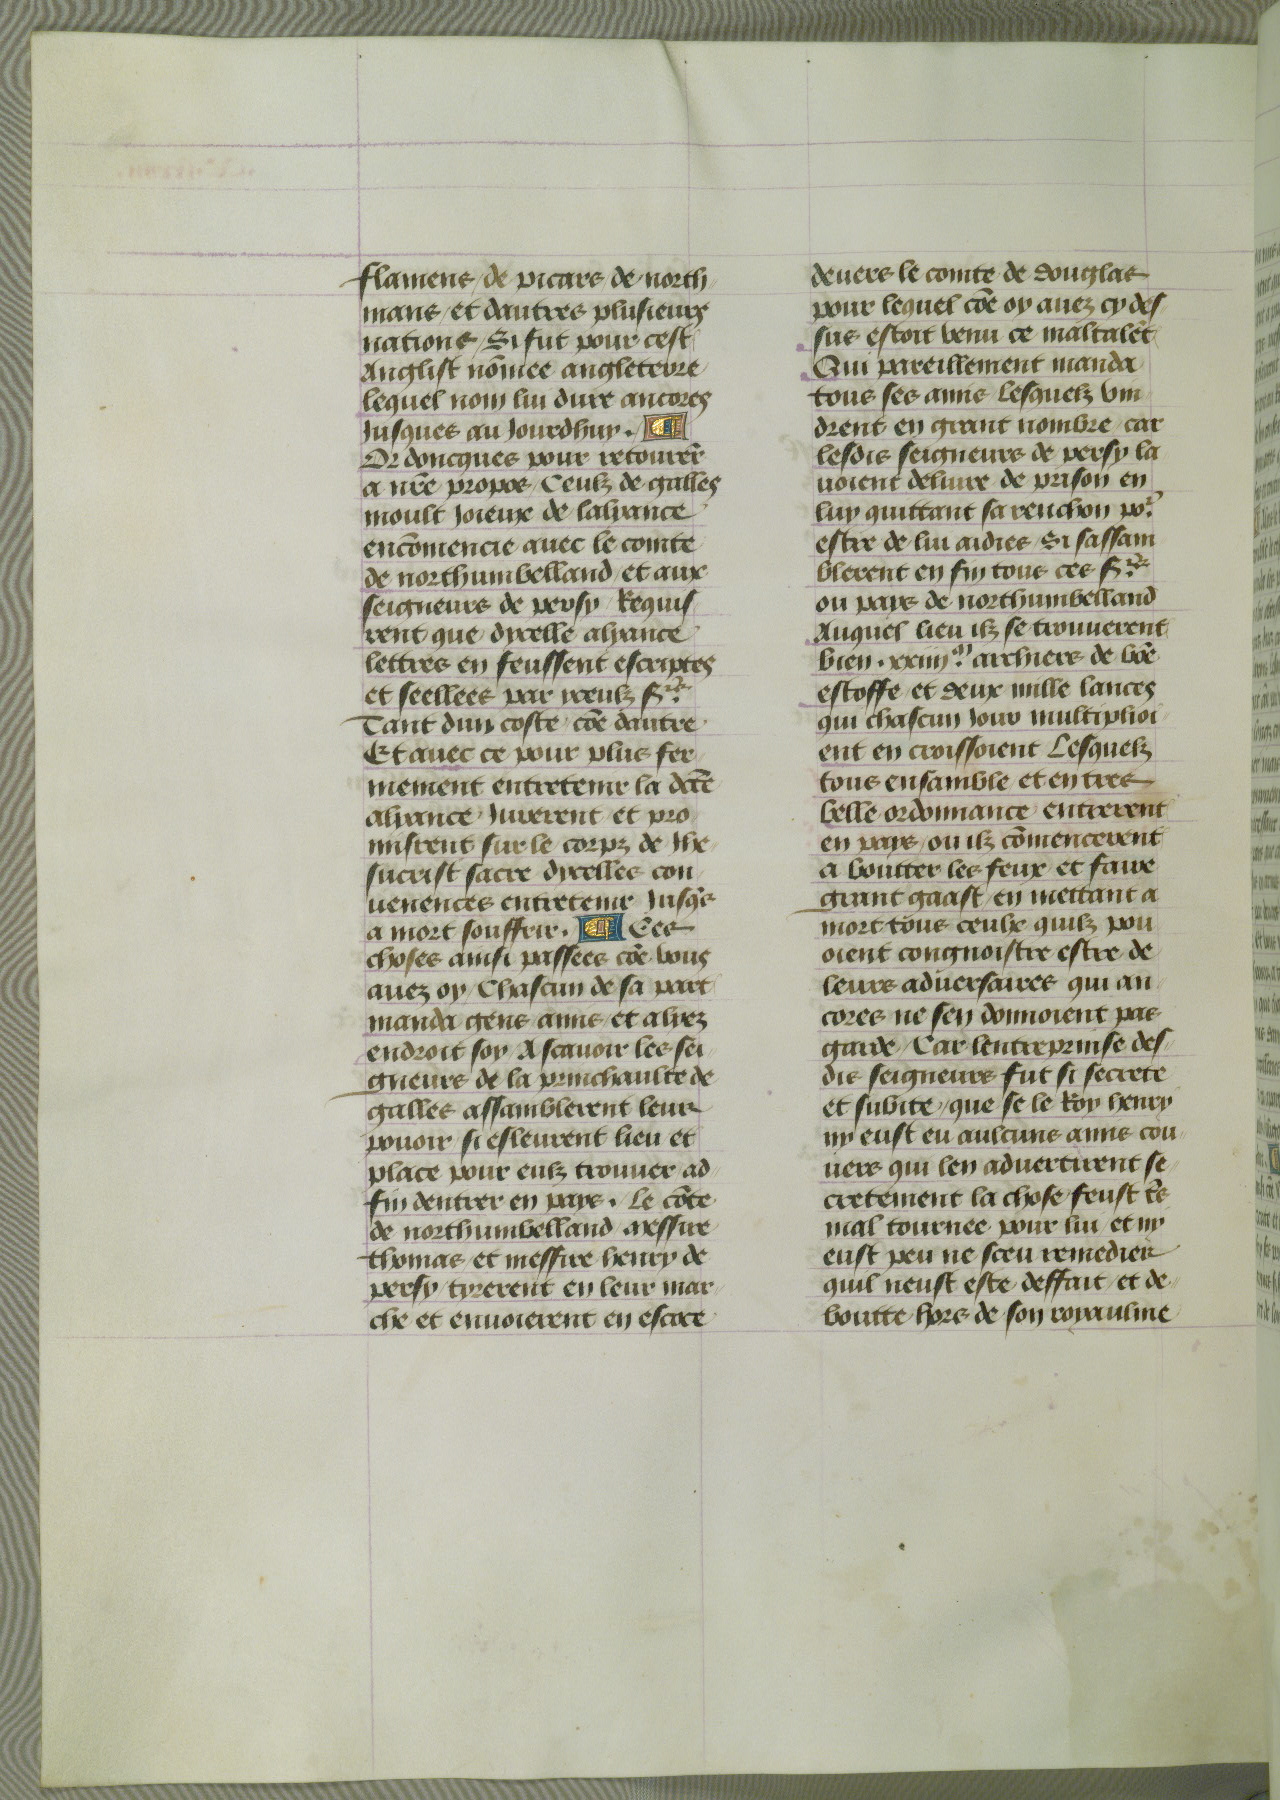 flamens / de picars de north
mans / et dautres plusieurs
nations / Si fut pour cest
Anglist nōmee angleterre
lequel nom lui dure ancores
Jusques au Jourdhuy .
Or doncques pour retourēr
a nr̄e propos / Ceulz de galles
moult Joieux de laliance
encōmencie auec le comte
de northumbelland / et aux
seigneurs de persy / Requis
rent que dicelle aliance
lettres en feussent escriptes
et seellees par iceulz sʳˢ
Tant dun coste / cōe dautre
Et auec ce pour plus fer
mement entretenir la dc̄te
aliance Jurerent et pro
mistrent sur le corps de Jhe
sucrist sacre dicelles con
uenences entretenir Jusq̄s
a mort souffrir . Ces
choses ainsi passees cōe vous
auez oy / Chascun de sa part
manda gens amis et aliez
endroit soy / Ascauoir les sei
gneurs de la princhaulte de
galles assamblerent leur
pouoir / si esleurent lieu et
place pour eulz trouuer ad
fin dentrer en pays . Le cōte
de northumbelland messire
thomas et messire henry de
persy tyrerent en leur mar
che et enuoierent en escoce
deuers le comte de douglas
pour lequel cōe oy auez cy des
sus estoit venu ce maltalēt
Qui pareillement manda
tous ses amis Lesquelz vin
drent en grant nombre / car
lesdis seigneurs de persy la
uoient deliure de prison en
luy quittant sa renchon poʳ
estre de lui aidies / Si sassam
blerent en fin tous ces sʳˢ
ou pays de northumbelland
Auquel lieu ilz se trouuerent
bien . xxiiii ᵐ archiers de bōe
estoffe et deux mille lances
qui chascun Jour multiplioi
ent en croissoient Lesquelz
tous ensamble et en tres
belle ordonnance entrerent
en pays / ou ilz cōmencerent
a boutter les feux et faire
grant gaast / en mettant a
mort tous ceulx quilz pou
oient congnoistre estre de
leurs aduersaires qui an
cores ne sen donnoient pas
garde / Car lentreprinse des
dis seigneurs fut si secrete
et subite / que se le Roy henry
ny eust eu aulcuns amis cou
uers qui len aduertirent se
cretement la chose feust tr̄s
mal tournee pour lui et ny
eust peu ne sceu remedier
quil neust este deffait et de
boutte hors de son royaulme